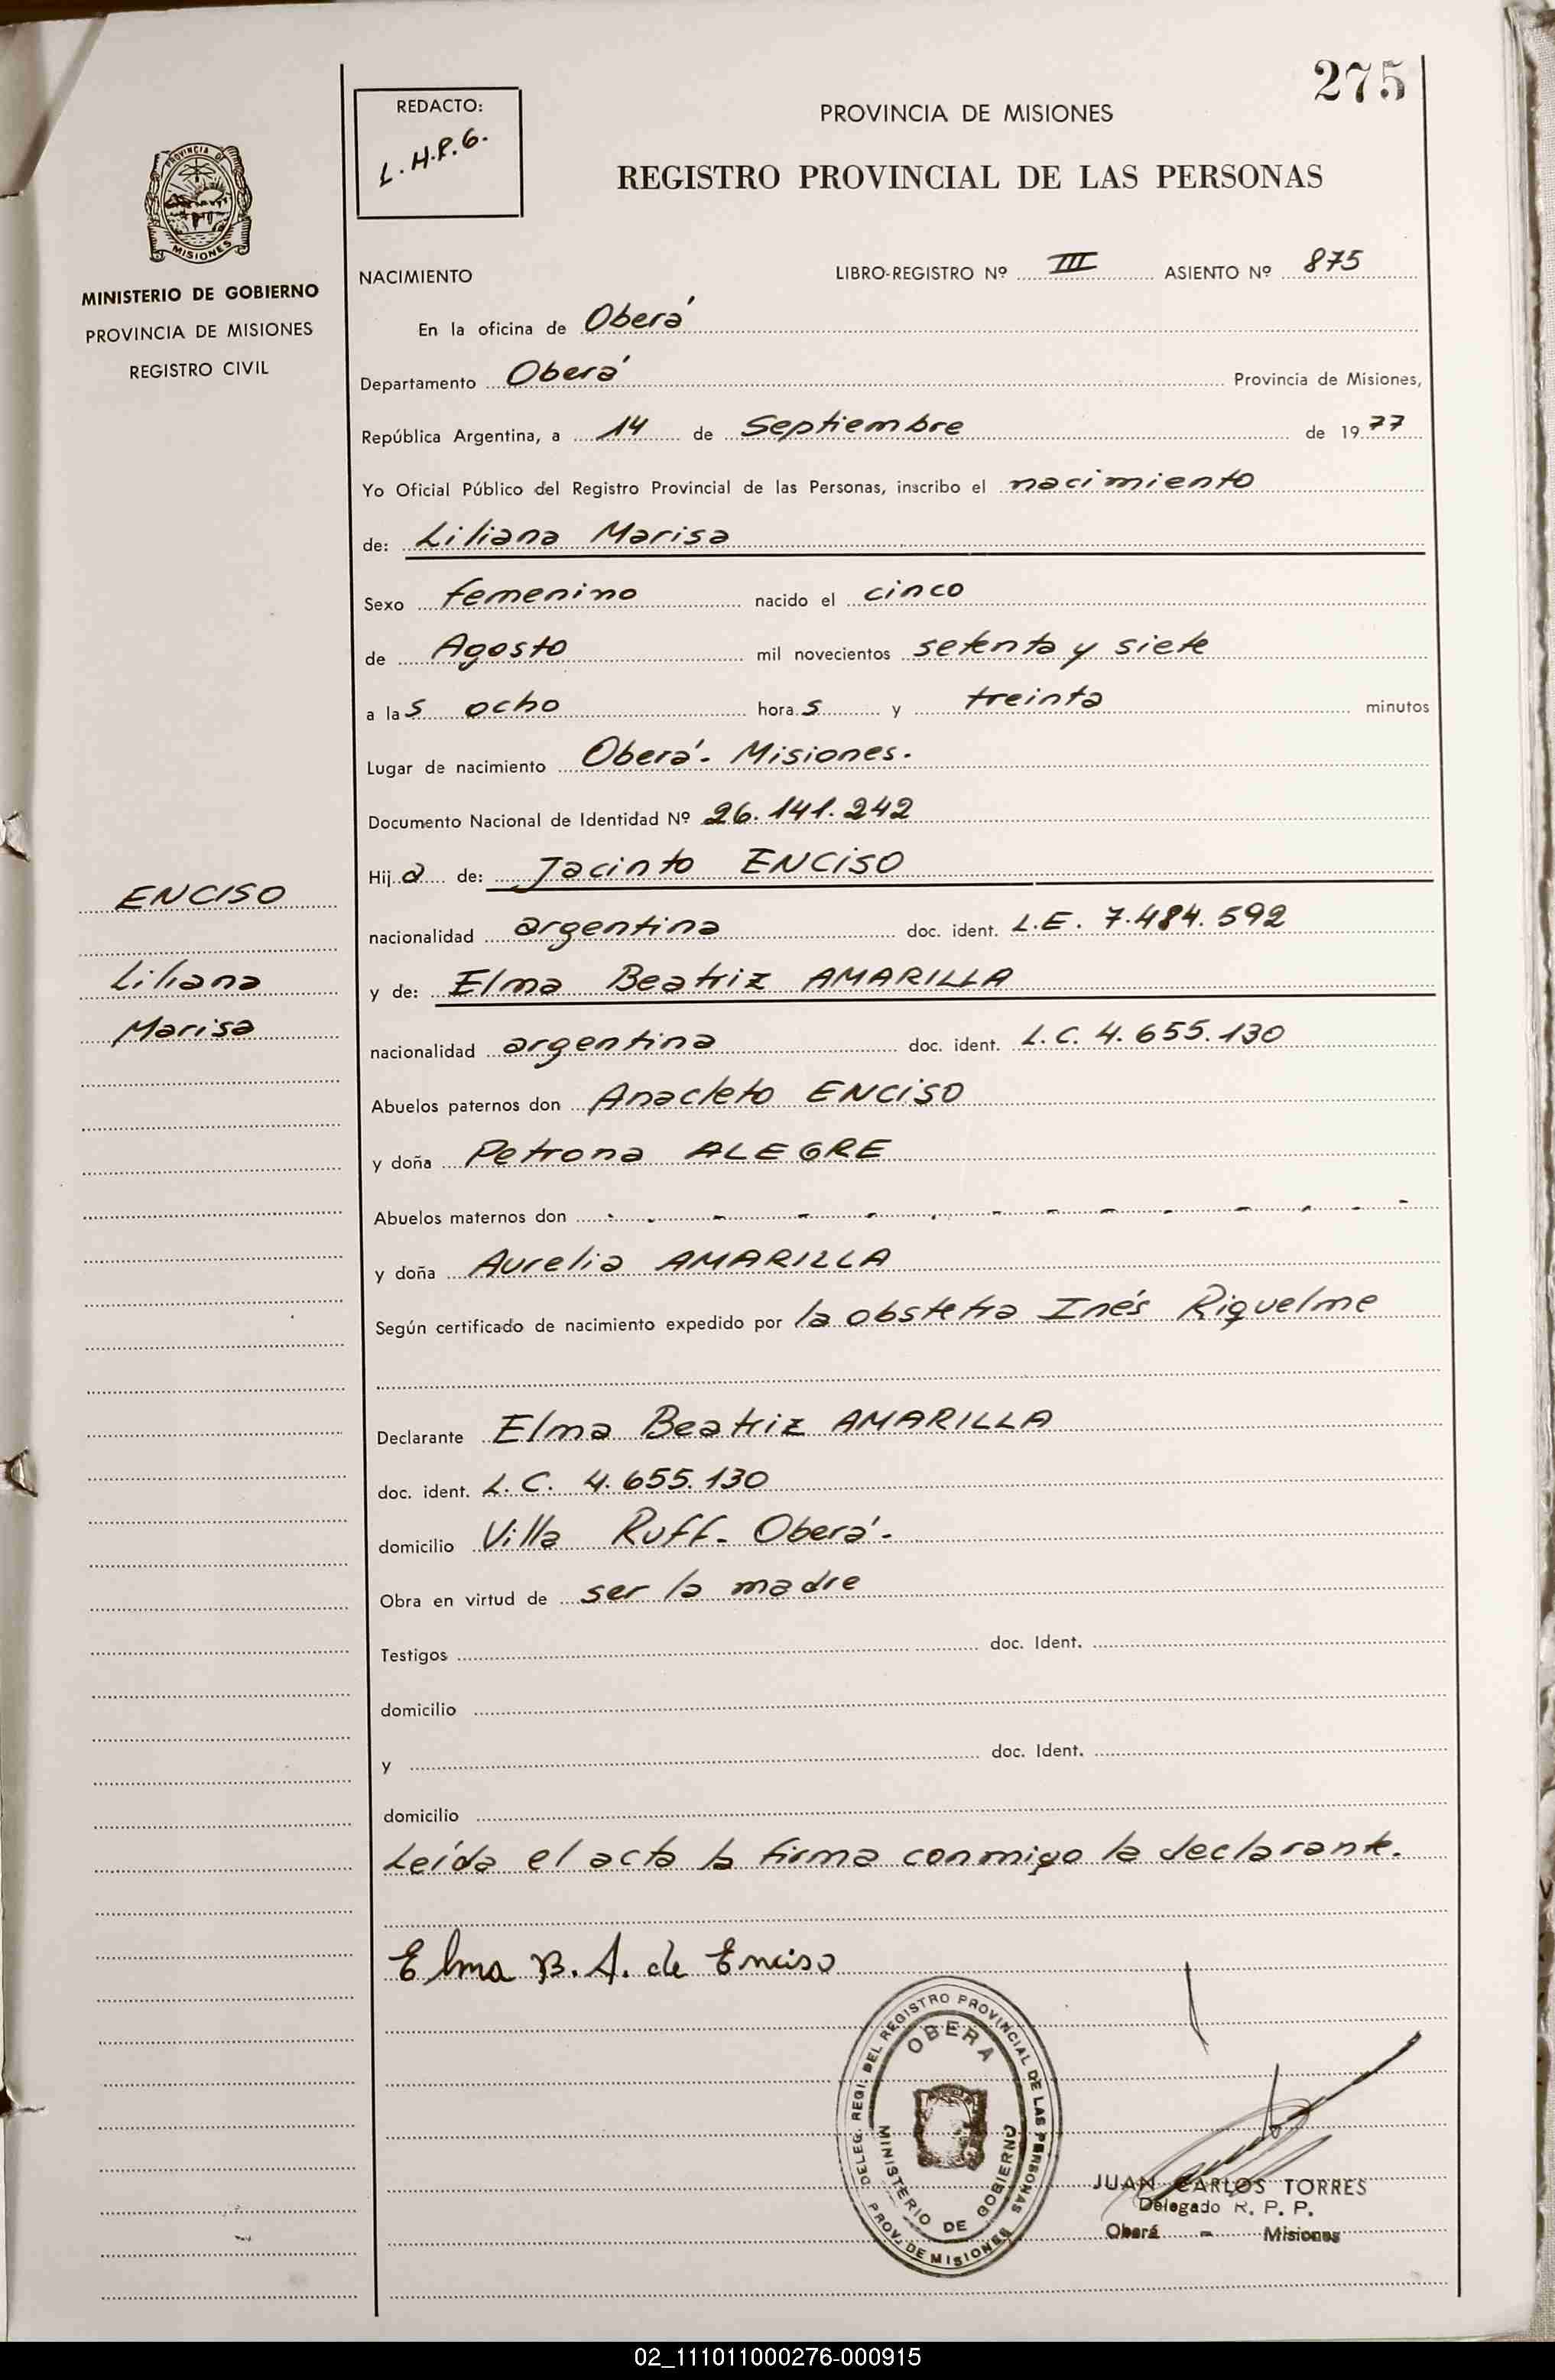 275
REDACTO:
L.H.R.G.
PROVINCIA DE MISIONES
REGISTRO PROVINCIAL DE LAS PERSONAS
PROVINCIA DE
MISIONES
MINISTERIO DE GOBIERNO
PROVINCIA DE MISIONES
REGISTRO CIVIL
NACIMIENTO LIBRO-REGISTRO Nº III ASIENTO Nº 875
En la oficina de Oberá
Departamento Oberá Provincia de Misiones,
República Argentina, a 14 de Septiembre de 1977
Yo Oficial Público del Registro Provincial de las Personas, inscribo el nacimiento
de: Liliana Marisa
Sexo femenino nacido el cinco
de Agosto mil novecientos setenta y siete
a las ocho horas y treinta minutos
Lugar de nacimiento Oberá - Misiones.
Documento Nacional de Identidad Nº 26.141.242
Hija de: Jacinto ENCISO
nacionalidad argentina doc. ident. L.E. 7.484.592
y de: Elma Beatriz AMARILLA
nacionalidad argentina doc. ident. L.C. 4.655.130
Abuelos paternos don Anacleto ENCISO
y doña Petrona ALEGRE
Abuelos maternos don - - - - - - - - - - - - - -
y doña Aurelia AMARILLA
Según certificado de nacimiento expedido por la obstetra Inés Riquelme
Declarante Elma Beatriz AMARILLA
doc. ident. L.C. 4.655.130
domicilio Villa Ruff - Oberá -
Obra en virtud de ser la madre
Testigos doc. Ident.
domicilio
y doc. Ident.
domicilio
Leída el acta la firma conmigo la declarante.
Elma B. A. de Enciso
ENCISO
Liliana
Marisa
DELEG. REGI. DEL REGISTRO PROVINCIAL DE LAS PERSONAS
PROV. DE MISIONES
OBERA
MINISTERIO DE GOBIERNO
JUAN CARLOS TORRES
Delegado R. P. P.
Oberá - Misiones
02_111011000276-000915